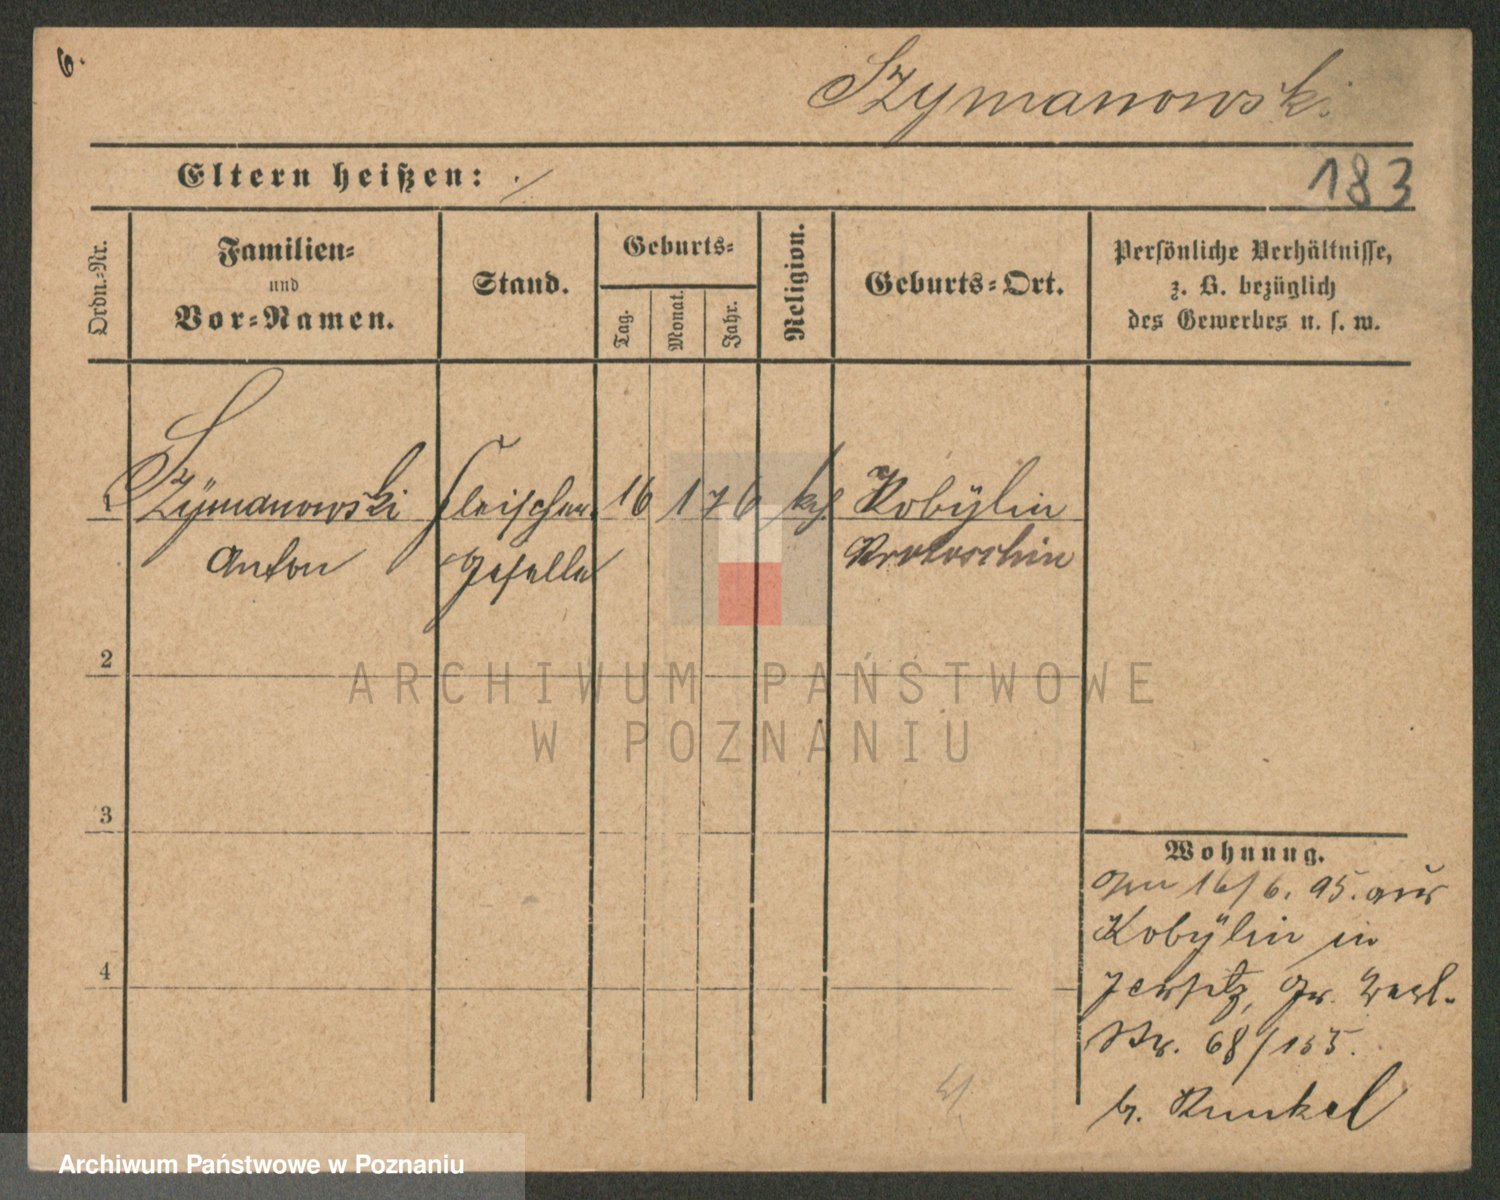 6.
Szymanowski
Eltern heißen:
183
Ordn.-Nr.
Familien-
und
Vor-Namen.
Stand.
Geburts-
Tag.
Monat.
Jahr.
Religion.
Geburts-Ort.
Persönliche Verhältnisse,
z. B. bezüglich
des Gewerbes u. s. w.
1 Szÿmanowski Fleischer 16 1 76 kh. Kobÿlin
Anton Geselle Krotoschin
2
ARCHIWUM PAŃSTWOWE
W POZNANIU
3
Wohnung.
16/6. 95. aus
Kobÿlin in
4
Jersitz, Gr. Berl.
Str. 68/155.
b. Kunkel
Archiwum Państwowe w Poznaniu